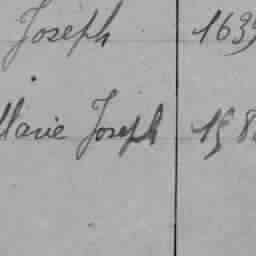 Joseph 1639
Marie Joseph 198